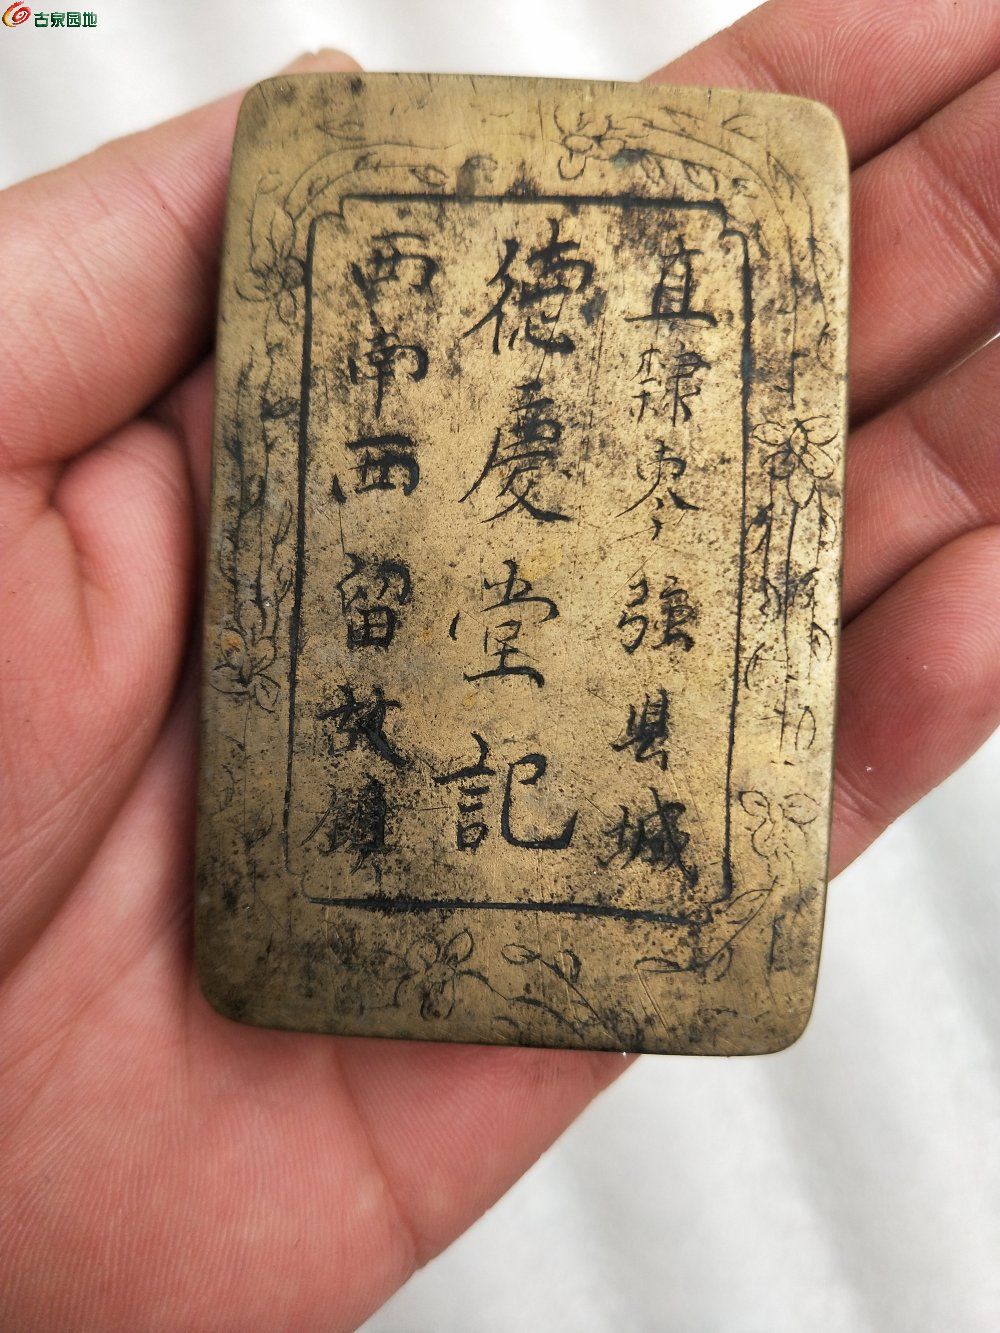 直隷枣强县城
德慶堂記
西南西留故鎮
古泉园地